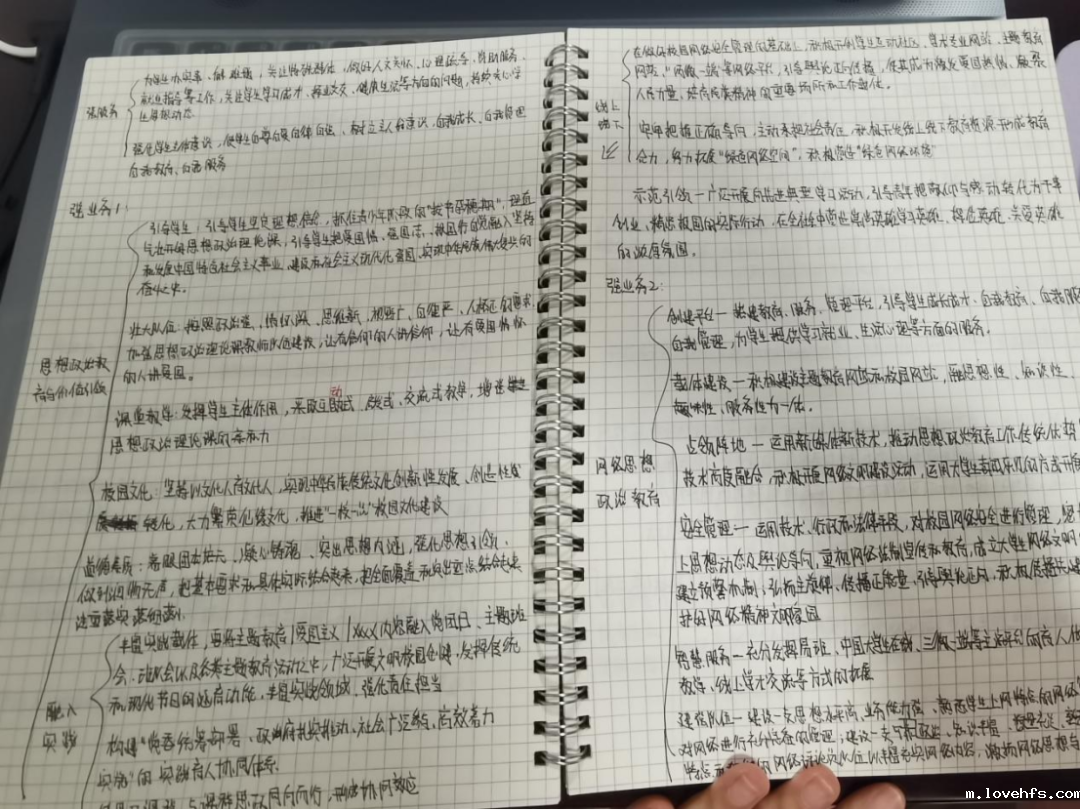 为学生办实事、解难题，关注特殊群体，做好人文关怀、心理疏导、资助服务、
就业指导等工作，关注学生学习成才、择业交友、健康生活等方面的问题，持续关心学
生思想动态
强服务
强化学生主体意识，使学生自尊自爱自律自强、树立主人翁意识，自我成长、自我管理
自我教育、自我服务
强业务1：
引导学生，引导学生坚定理想信念，抓住青少年阶段的"拔节孕穗期"，理直
气壮开好思想政治理论课，引导学生把爱国情、强国志、报国行自觉融入坚持
和发展中国特色社会主义事业，建设社会主义现代化强国，实现中华民族伟大复兴的
奋斗之中。
壮大队伍：按照政治强、情怀深、思维新、视野广、自律严、人格正的要求
加强思想政治理论课教师队伍建设，让有信仰的人讲信仰，让有爱国情怀
的人讲爱国。
思想政治教
育与价值引领
注重教学：发挥学生主体作用，采取互动式、启发式、交流式教学，增进
思想政治理论课的亲和力
校园文化：坚持以文化人育文化人，实现中华民族传统文化创新性发展、创造性
转化，大力繁荣 文化，推进"一校一 "校园文化建设
道德素质：着眼固本培元、凝心铸魂、突出思想内涵，强化思想引领、
做到润物无声，把基本要求和具体实际结合起来，把全面覆盖和突出重点结合起来
注重落实落细落小
丰富实践载体，要将主题教育/爱国主义/XXXX内容融入党团日、主题班
会、班会以及各类主题教育活动之中，广泛开展文明校园创建，发挥传统
和现代节日的涵育功能，丰富实践领域，强化责任担当
融入
实践
构建"党委统筹部署、政府扎实推动、社会广泛参与、高效着力
实施"的实践育人协同体系
与课程思政同向而行，形成协同效应
在做好校园网络安全管理的基础上，积极开创学生互动社区、学术专业网站、主题教育
网站、"两微一端"等网络平台，引导舆论正向传播，使其成为激发爱国热情、凝聚
人民力量、培育民族精神的重要场所和工作载体。
线上
线下
牢牢把握正确导向，主动承担社会责任，积极开发线上线下教育资源形成教育
合力，努力拓展"绿色网络空间"，积极营造"绿色网络环境"
示范引领一广泛开展向先进典型学习活动，引导青年把敬仰与感动转化为干事
创业、精忠报国的实际行动，在全社会中营造崇尚英雄学习英雄、捍卫英雄、关爱英雄
的浓厚氛围。
强业务2：
创建平台一搭建教育、服务、管理平台，引导学生成长成才、自我教育、自我服
自我管理，为学生提供学习就业、生活心理等方面的服务。
载体建设一积极建设主题教育网站和校园网站，融思想性、知识性、
趣味性、服务性为一体。
占领阵地一运用新媒体新技术，推动思想政治教育工作传统优势
技术高度融合，积极开展网络文明建设活动，运用大学生喜闻乐见的方式开展
网络思想
政治教育
安全管理一运用技术、行政和法律手段，对校园网络安全进行管理，
上思想动态及舆论导向，重视网络法制宣传和教育，成立大学生网络文明
建立预警机制；弘扬主旋律、传播正能量，引导舆论走向，积极传播
护好网络精神文明家园
智慧服务一充分发挥易班、中国大学生在线、三微一端等主流平台的育人
教学、线上学术交流等方式的拓展
建强队伍一建设一支思想水平高、业务能力强、熟悉学生上网特点的网络
对网络进行 的管理；建设一支 、知识丰富、
特点 的网络评论员队伍以丰富充实网络内容，激扬网络思想与
m.lovehfs.com